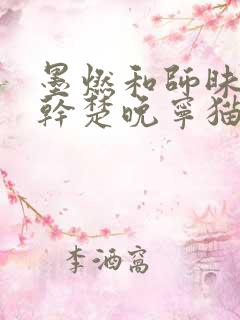 墨燃和師昧
幹楚晚寧猫
李酒窩